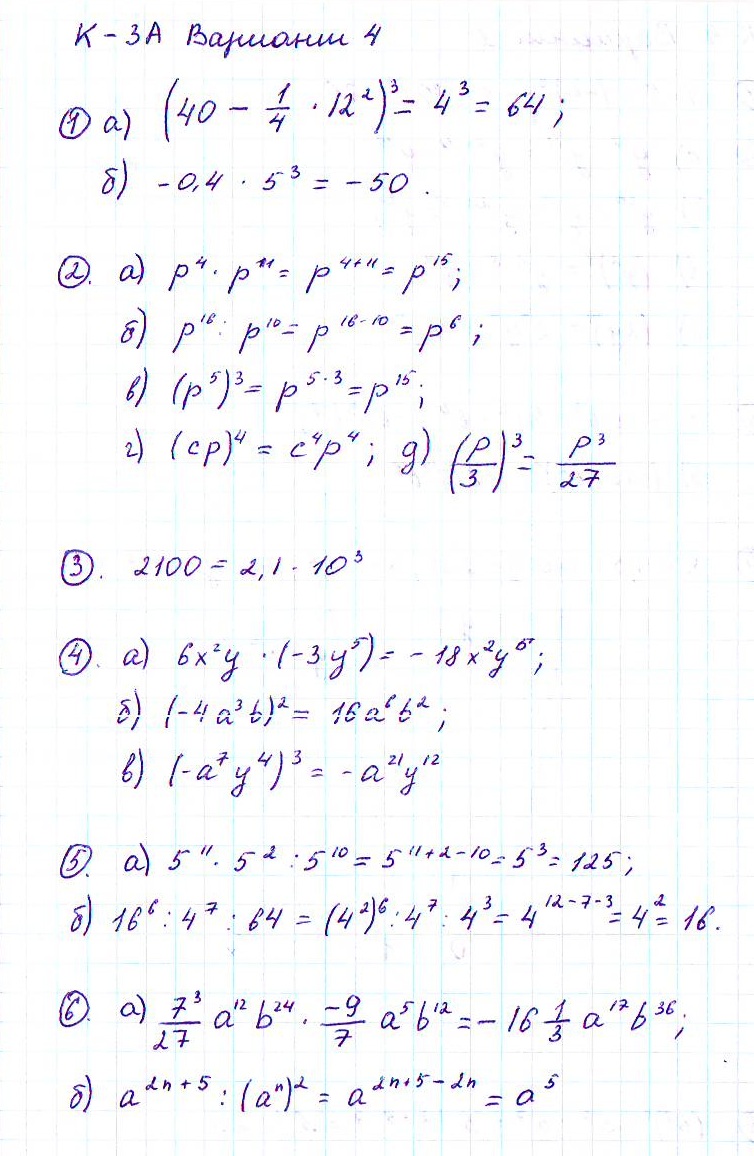 К-3А Вариант 4
① а) (40 - 1/4 · 12²)³ = 4³ = 64;
б) -0,4 · 5³ = -50.
②. а) p⁴ · p¹¹ = p⁴⁺¹¹ = p¹⁵;
б) p¹⁶ : p¹⁰ = p¹⁶⁻¹⁰ = p⁶;
в) (p⁵)³ = p^(5·3) = p¹⁵;
г) (cp)⁴ = c⁴p⁴; д) (p/3)³ = p³/27
③. 2100 = 2,1 · 10³
④. а) 6x²y · (-3y⁵) = -18x²y⁶;
б) (-4a³b)² = 16a⁶b²;
в) (-a⁷y⁴)³ = -a²¹y¹²
⑤. а) 5¹¹ · 5² : 5¹⁰ = 5¹¹⁺²⁻¹⁰ = 5³ = 125;
б) 16⁶ : 4⁷ : 64 = (4²)⁶ : 4⁷ : 4³ = 4¹²⁻⁷⁻³ = 4² = 16.
⑥. а) 7³/27 a¹²b²⁴ · -9/7 a⁵b¹² = -16 1/3 a¹⁷b³⁶;
б) a²ⁿ⁺⁵ : (aⁿ)² = a²ⁿ⁺⁵⁻²ⁿ = a⁵